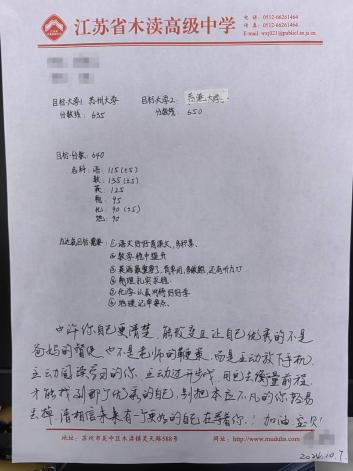 江苏省木渎高级中学
电话：0512-66261464
传真：0512-66261464
E-mail: wxj021@public1.sz.js.cn
目标大学1：苏州大学 目标大学2：
分数线：635 分数线：650
目标分数：640
各科：语：115(±5)
数：135(±5)
英：125
物：95
化：90(±5)
地：90
为达成目标需要：①语文好好背课文，多积累。
②数学稳中提升
③英语最重要了，背单词，还有听力
④物理扎实求稳
⑤化学认真
⑥地理记牢要点
也许你自己更清楚，能改变且让自己优秀的不是
爸妈的督促，也不是老师的鞭策，而是主动放下手机，
主动阅读学习的你，主动进步，用
才能找到那个优秀的自己，别把本应不凡的你轻易
丢掉，请相信未来有一更好的自己在等着你！加油，宝贝！
地址：苏州市吴中区木渎镇灵天路588号 网址：http://www.muduhs.com
2024.10.7.